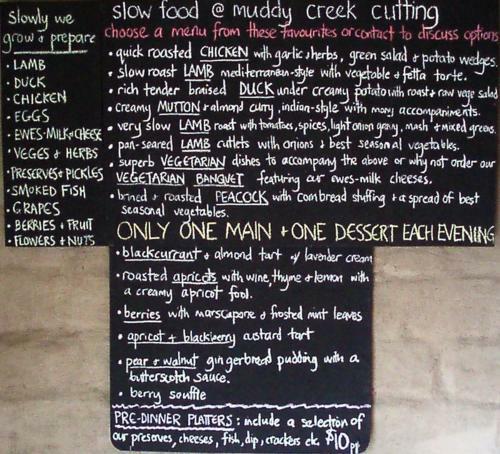 Slowly we
grow & prepare
• LAMB
• DUCK
• CHICKEN
• EGGS
• EWES-MILK CHEESE
• VEGES & HERBS
• PRESERVES & PICKLES
• SMOKED FISH
• GRAPES
• BERRIES & FRUIT
• FLOWERS & NUTS
slow food @ muddy creek cutting
choose a menu from these favourites or contact to discuss options
• quick roasted CHICKEN with garlic & herbs, green salad & potato wedges.
• slow roast LAMB mediterranean-style with vegetable & fetta torte.
• rich tender braised DUCK under creamy potato with roast & raw vege salad
• creamy MUTTON & almond curry, indian-style with many accompaniments.
• very slow LAMB roast with tomatoes, spices, light onion gravy, mash & mixed greens.
• pan-seared LAMB cutlets with onions & best seasonal vegetables.
• superb VEGETARIAN dishes to accompany the above or why not order our
VEGETARIAN BANQUET featuring our ewes-milk cheeses.
• brined & roasted PEACOCK with cornbread stuffing & a spread of best
seasonal vegetables.
ONLY ONE MAIN + ONE DESSERT EACH EVENING
• blackcurrant & almond tart w/ lavender cream
• roasted apricots with wine, thyme & lemon with
a creamy apricot fool.
• berries with marscapone & frosted mint leaves
• apricot & blackberry custard tart
• pear & walnut gingerbread pudding with a
butterscotch sauce.
• berry souffle
PRE-DINNER PLATTERS: include a selection of
our preserves, cheeses, fish, dip, crackers etc. $10pp